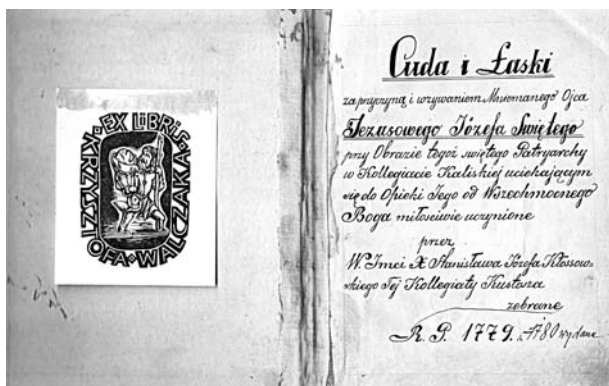 EX LIBRIS
KRZYSZTOFA WALCZAKA
Cuda i Łaski
za przyczyną i wzywaniem Mniemanego Ojca
Jezusowego Józefa Świętego
przy Obrazie tegoż świętego Patryarchy
w Kollegiacie Kaliskiej uciekającym
się do Opieki Jego od Wszechmocnego
Boga miłościwie uczynione
przez
W. Imci X Stanisława Józefa Kłossow-
skiego Tej Kollegiaty Kustosza
zebrane
R. P. 1779. a 1780 wydane